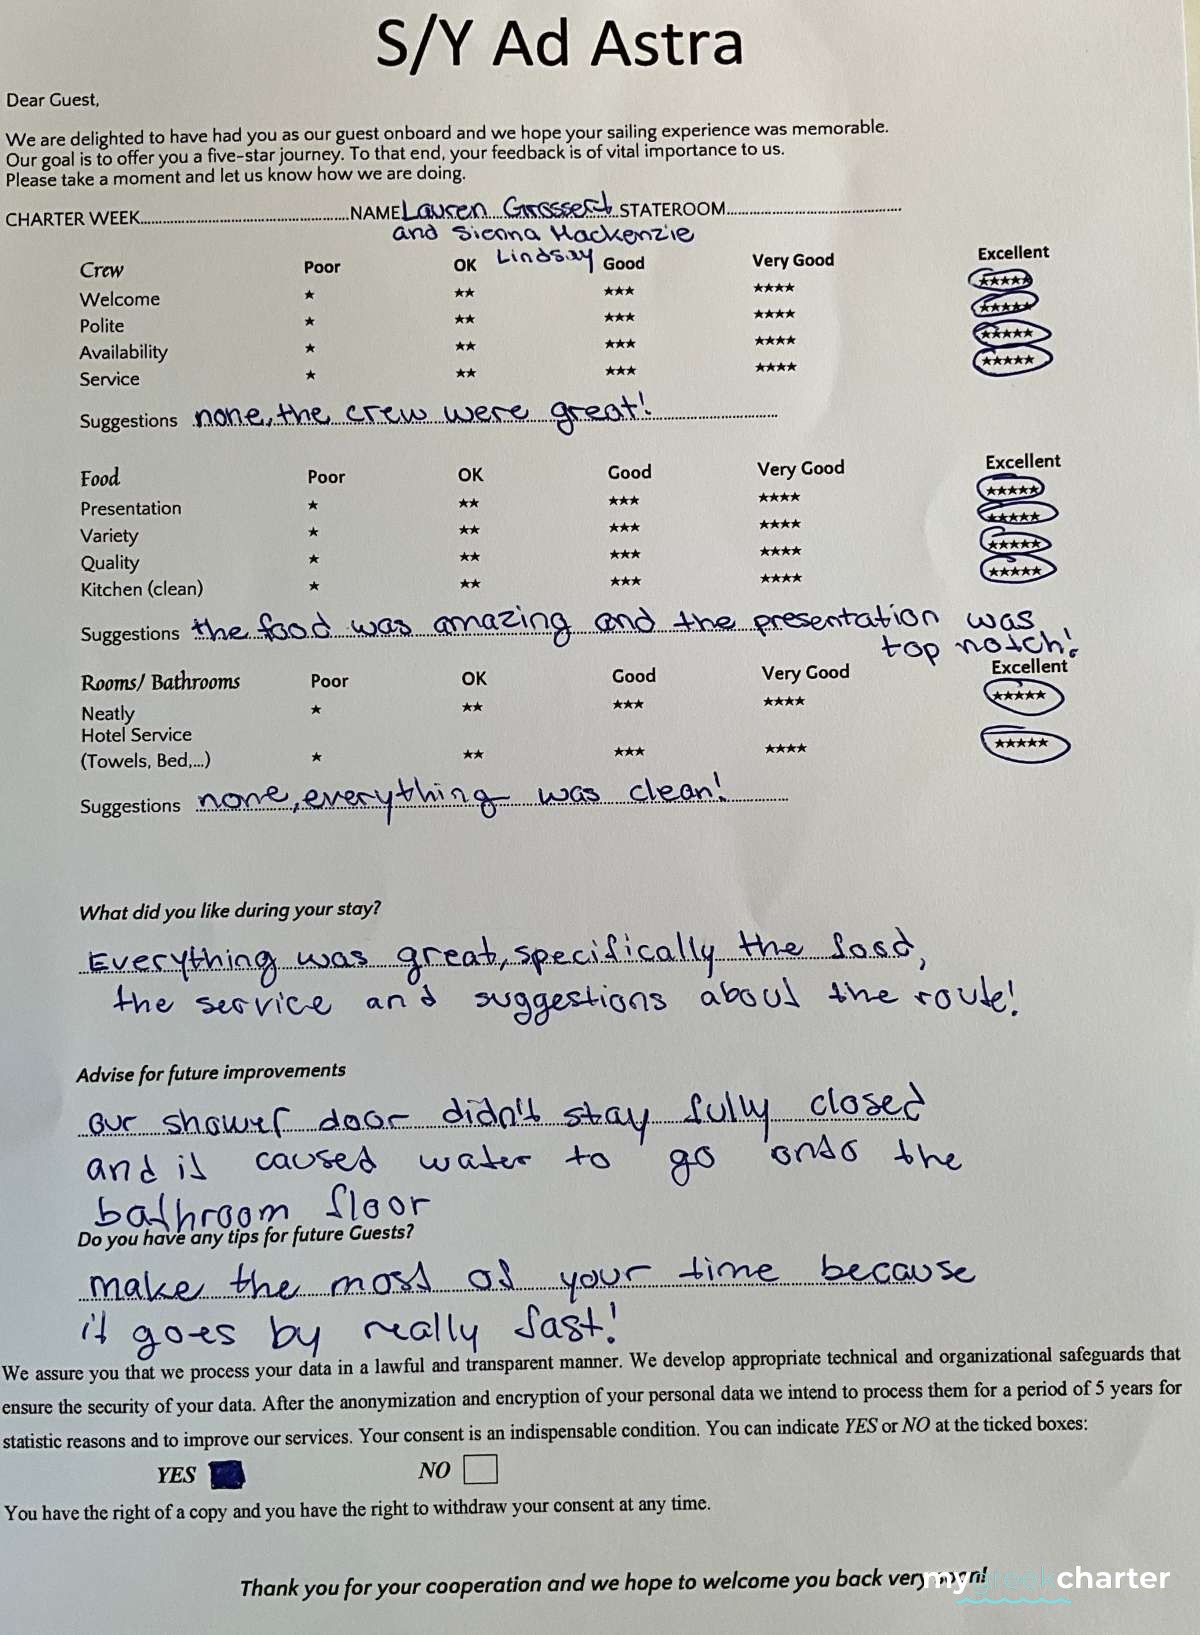 S/Y Ad Astra
Dear Guest,
We are delighted to have had you as our guest onboard and we hope your sailing experience was memorable.
Our goal is to offer you a five-star journey. To that end, your feedback is of vital importance to us.
Please take a moment and let us know how we are doing.
CHARTER WEEK..........NAME Lauren Grossert STATEROOM..........
and Sienna Mackenzie
Lindsay
Crew Poor OK Good Very Good Excellent
Welcome ★ ★★ ★★★ ★★★★ ★★★★★
Polite ★ ★★ ★★★ ★★★★ ★★★★★
Availability ★ ★★ ★★★ ★★★★ ★★★★★
Service ★ ★★ ★★★ ★★★★ ★★★★★
Suggestions none, the crew were great!
Food Poor OK Good Very Good Excellent
Presentation ★ ★★ ★★★ ★★★★ ★★★★★
Variety ★ ★★ ★★★ ★★★★ ★★★★★
Quality ★ ★★ ★★★ ★★★★ ★★★★★
Kitchen (clean) ★ ★★ ★★★ ★★★★ ★★★★★
Suggestions the food was amazing and the presentation was
top notch!
Rooms/ Bathrooms Poor OK Good Very Good Excellent
Neatly ★ ★★ ★★★ ★★★★ ★★★★★
Hotel Service
(Towels, Bed,...) ★ ★★ ★★★ ★★★★ ★★★★★
Suggestions none, everything was clean!
What did you like during your stay?
Everything was great, specifically the food,
the service and suggestions about the route!
Advise for future improvements
our shower door didn't stay fully closed
and it caused water to go onto the
bathroom floor
Do you have any tips for future Guests?
make the most of your time because
it goes by really fast!
We assure you that we process your data in a lawful and transparent manner. We develop appropriate technical and organizational safeguards that
ensure the security of your data. After the anonymization and encryption of your personal data we intend to process them for a period of 5 years for
statistic reasons and to improve our services. Your consent is an indispensable condition. You can indicate YES or NO at the ticked boxes:
YES NO
You have the right of a copy and you have the right to withdraw your consent at any time.
Thank you for your cooperation and we hope to welcome you back very soon!
mygreekcharter